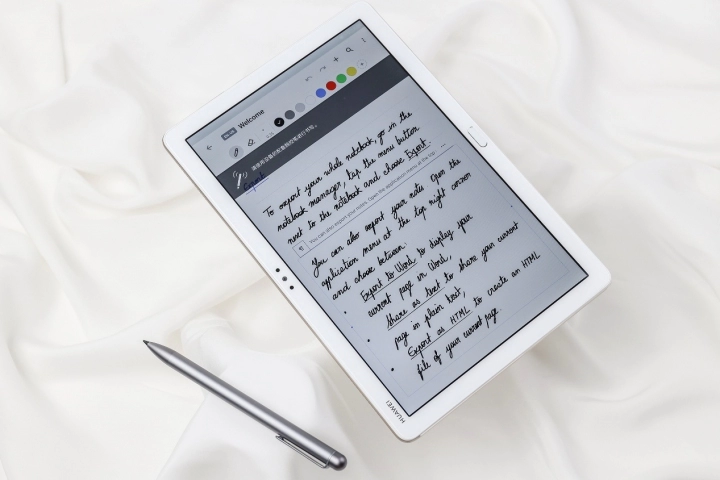 Welcome
Export
To export your whole notebook, go in the
notebook manager, tap the menu button
next to the notebook and choose Export.
You can also export your notes. Open the application menu at the top
You can also export your notes. Open the
application menu at the top right corner
and chose between:
Export to Word to display your
current page in Word,
Share as text to share your current
page in plain text,
Export as HTML to create an HTML
file of your current page
HUAWEI